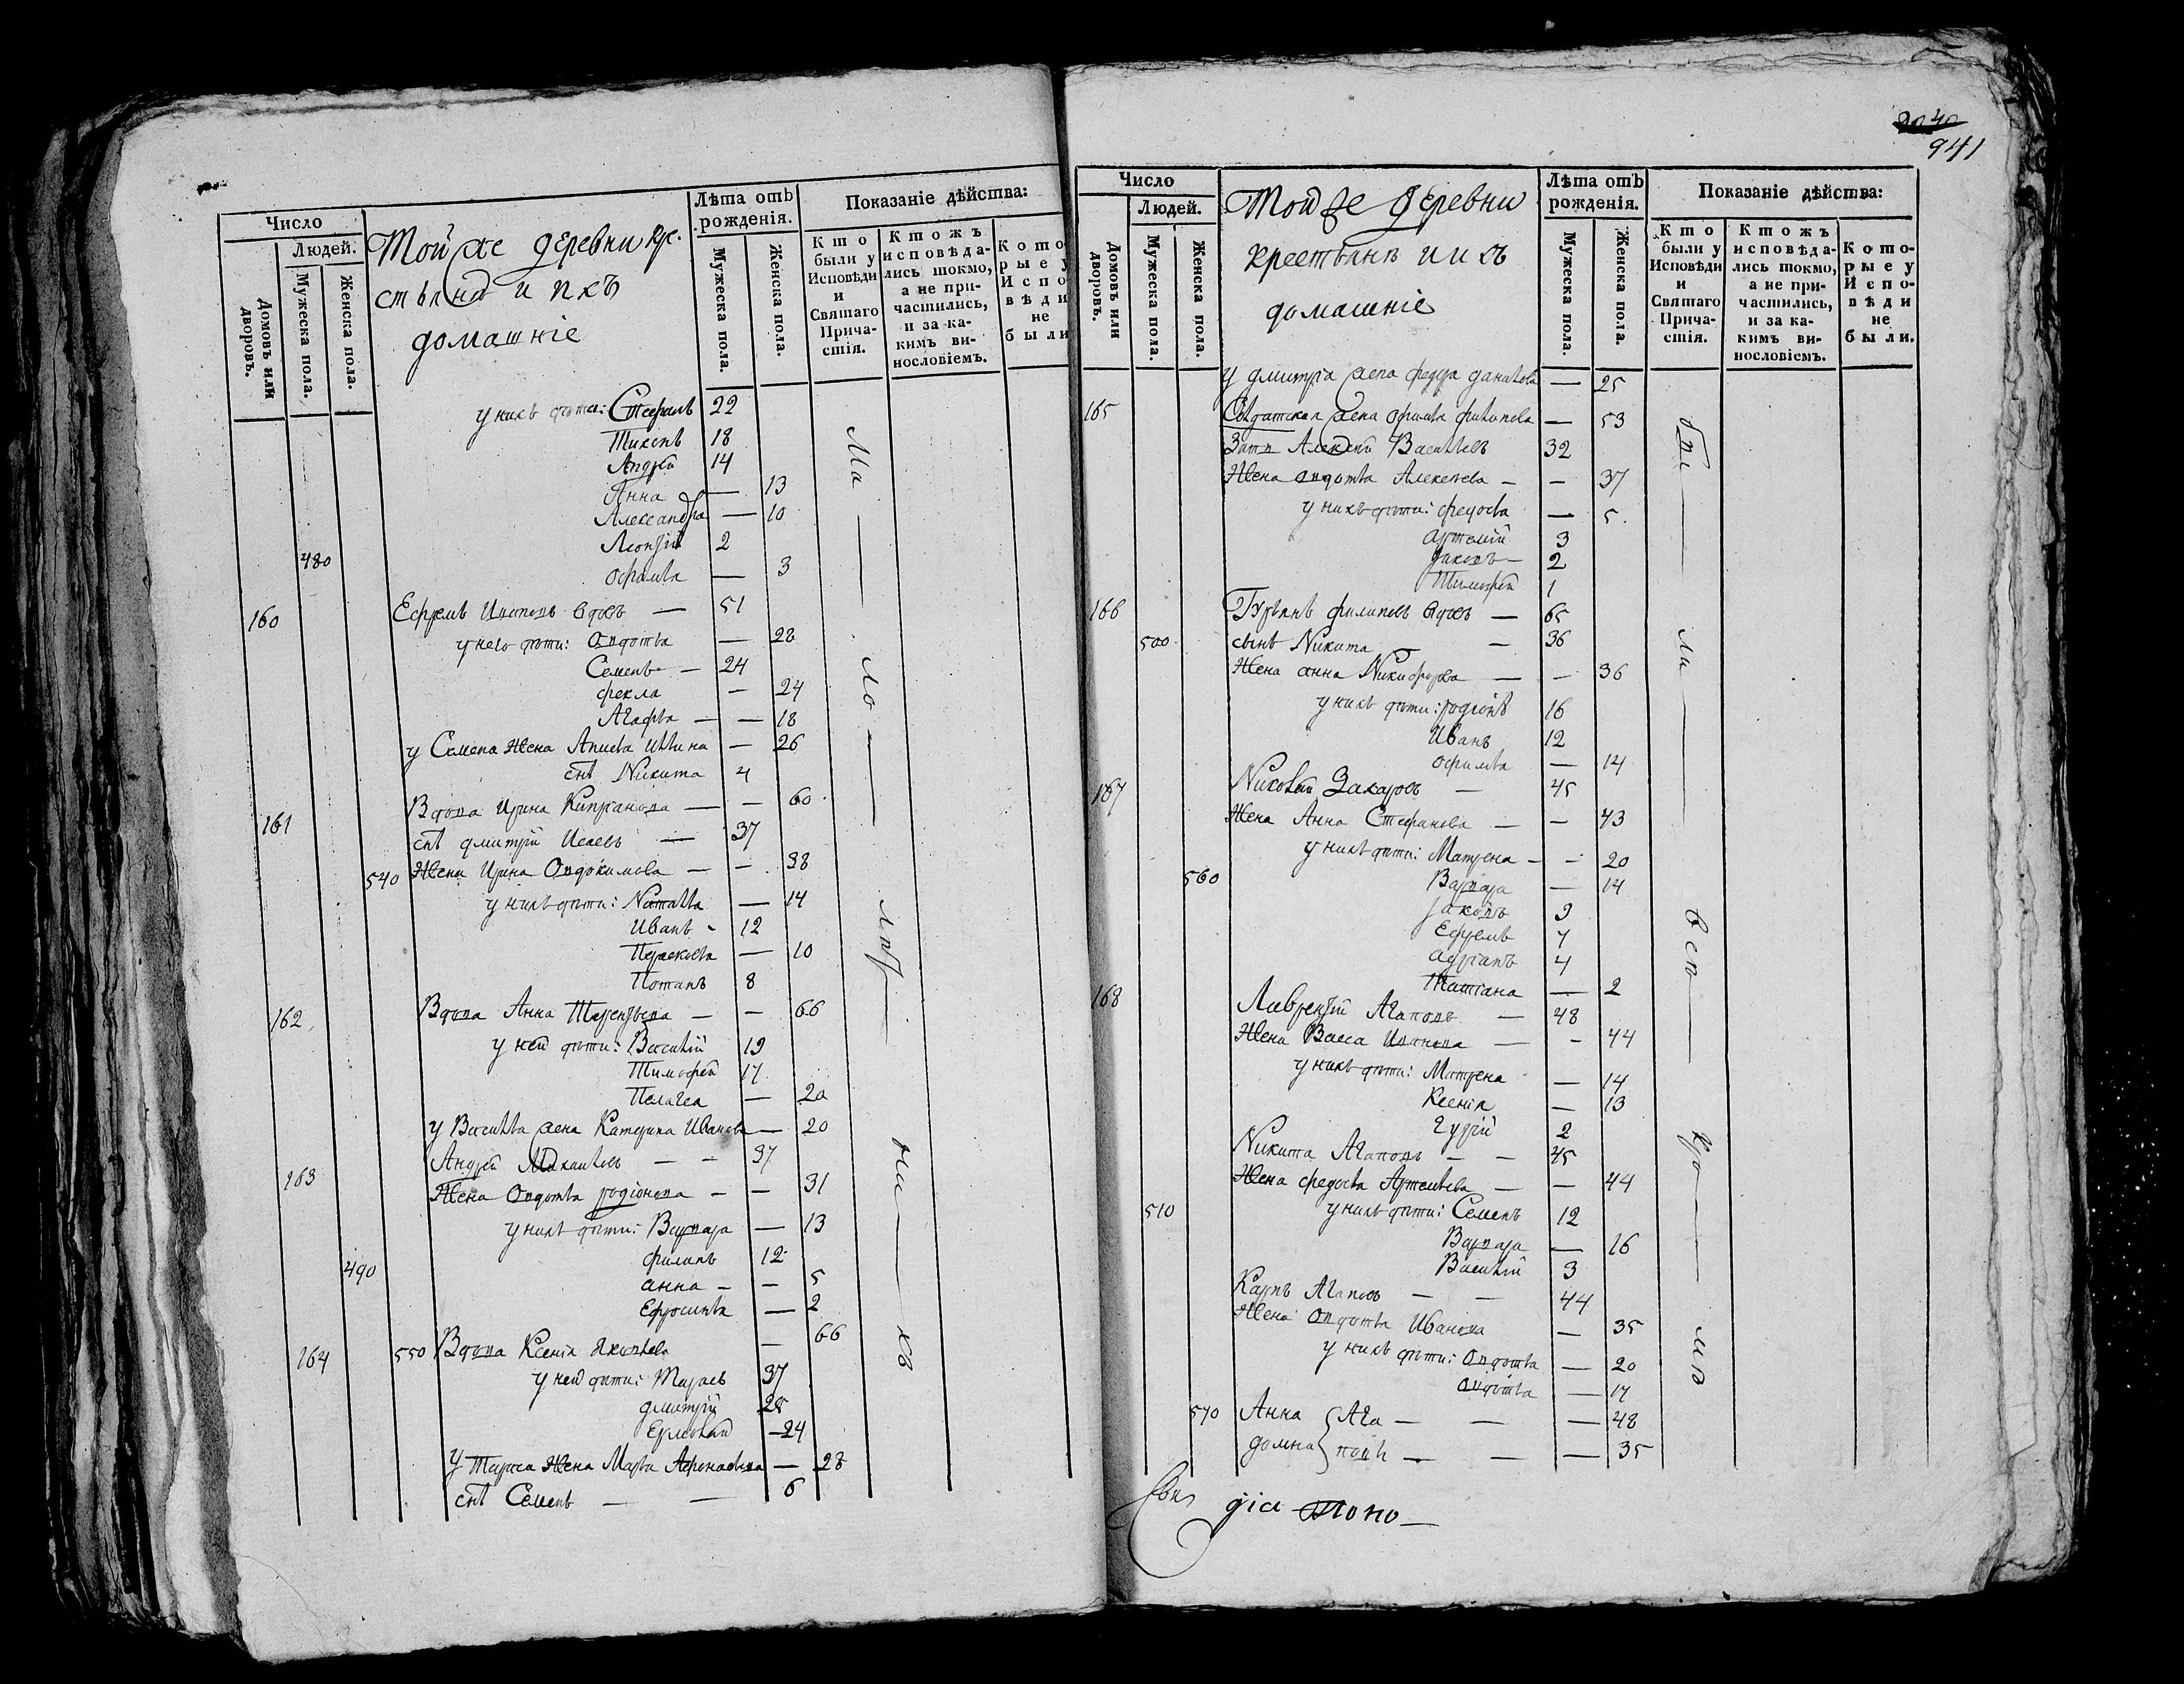 Число
Людей.
Домовъ или дворовъ.
Мужеска пола.
Женска пола.
Той же деревни кре-
стьянѣ и ихъ
домашніе
Лѣта отъ рожденія.
Мужеска пола.
Женска пола.
Показаніе дѣйства:
Кто были у Исповѣди и Святаго Прича-стія.
Ктожъ исповѣда-лись токмо, а не при-частились, и за ка-кимъ ви-нословіемъ.
Кото рые у Испо вѣди не были
у нихъ дѣти: Стефанъ 22
Тихонъ 18
Андрей 14
Анна — 13
Александра — 10
Леонтій 2
480 Офимья — 3
160 Ефремъ Ивановъ вдовъ — 51
у него дѣти: Овдотья — 28
Семенъ — 24
Фекла — 24
Агафья — — 18
у Семена жена Анисья Ильина — 26
снъ Никита 4
161 Вдова Ирина Кипріанова — — 60
снъ Дмитрій Исаевъ — 37
540 Жена Ирина Овдокимова — — 38
у нихъ дѣти: Наталья — 14
Иванъ - 12
Парасковья — 10
Потапъ 8
162 Вдова Анна Терентьева — — 66
у ней дѣти: Василій 19
Тимофей 17
Пелагея — 20
у Василья жена Катерина Иванова — 20
163 Андрей Михайловъ — — 37
Жена Овдотья Родіонова — — 31
у нихъ дѣти: Варвара — 13
490 Филипъ 12
Анна — — 5
Ефросинья — 2
164 550 Вдова Ксенія Яковлева — 66
у ней дѣти: Тарасъ 37
Дмитрій 28
Ермолай — 24
у Тараса жена Марья Афонасьева — 28
снъ Семенъ — — 6
941
Число
Людей.
Домовъ или дворовъ.
Мужеска пола.
Женска пола.
Той же деревни
крестьянѣ и ихъ
домашніе
Лѣта отъ рожденія.
Мужеска пола.
Женска пола.
Показаніе дѣйства:
Кто были у Исповѣди и Святаго Прича-стія.
Ктожъ исповѣда-лись токмо, а не при-частились, и за ка-кимъ ви-нословіемъ.
Кото-рые у Испо-вѣди не были.
у Дмитріа жена Федора Данилова — 25
165 Солдатская жена Офимья Филипова — 53
Зять Алексей Васильевъ 32
Жена Овдотья Алексѣева — — 37
у нихъ дѣти: Федосья — 5
Артемій 3
Яковъ — 2
Тимофей 1
166 Гурьянъ Филиповъ вдовъ — 65
500 сынъ Никита — 36
Жена Анна Никифорова — — 36
у нихъ дѣти: Родіонъ 16
Иванъ 12
Офимья — 14
167 Николай Захаровъ — 45
Жена Анна Стефанова — — 43
у нихъ дѣти: Матрена — — 20
560 Варвара — 14
Яковъ 9
Ефремъ 7
Адріанъ 4
Татіана — 2
168 Лаврентій Агаповъ — 48
Жена Васса Иванова — — 44
у нихъ дѣти: Матрена — 14
Ксенія — 13
Гурій 2
Никита Агаповъ — — 45
Жена Федосья Артемьева — — 44
510 у нихъ дѣти: Семенъ 12
Варвара — 16
Василій 3
Карпъ Агаповъ — — 44
Жена Овдотья Иванова — 35
у нихъ дѣти: Овдотья — 20
Овдотья — 17
570 Анна { Ага — — — 48
Домна } повы — — — 35
діа коно —